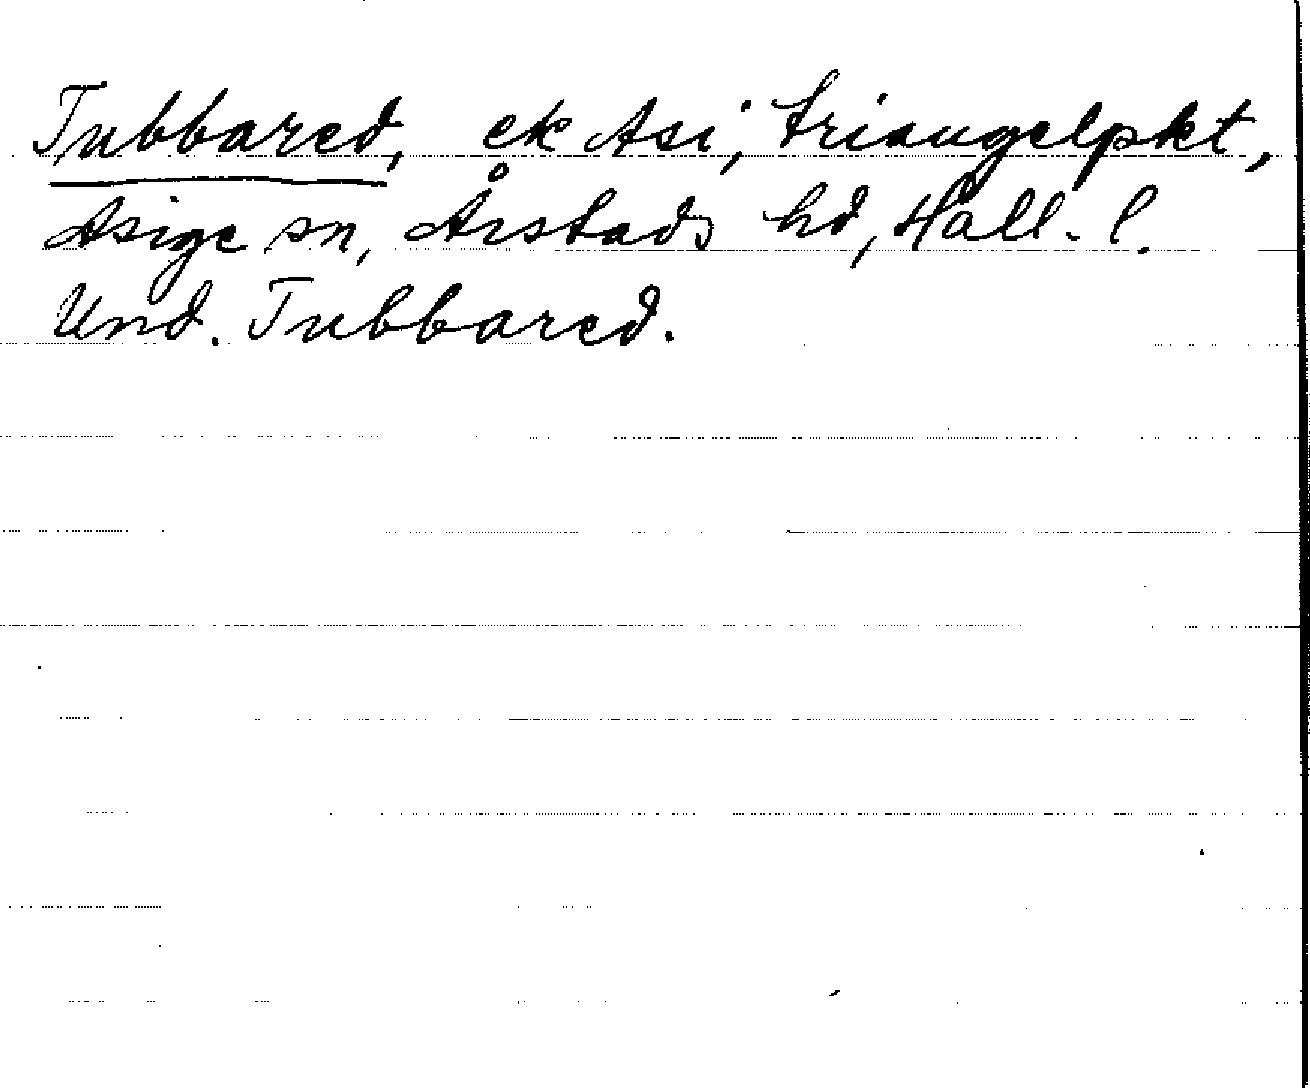 Tubbared, ek Asi, triangelpkt,
Asige sn, Årstads hd, Hall. l.
Und. Tubbared.